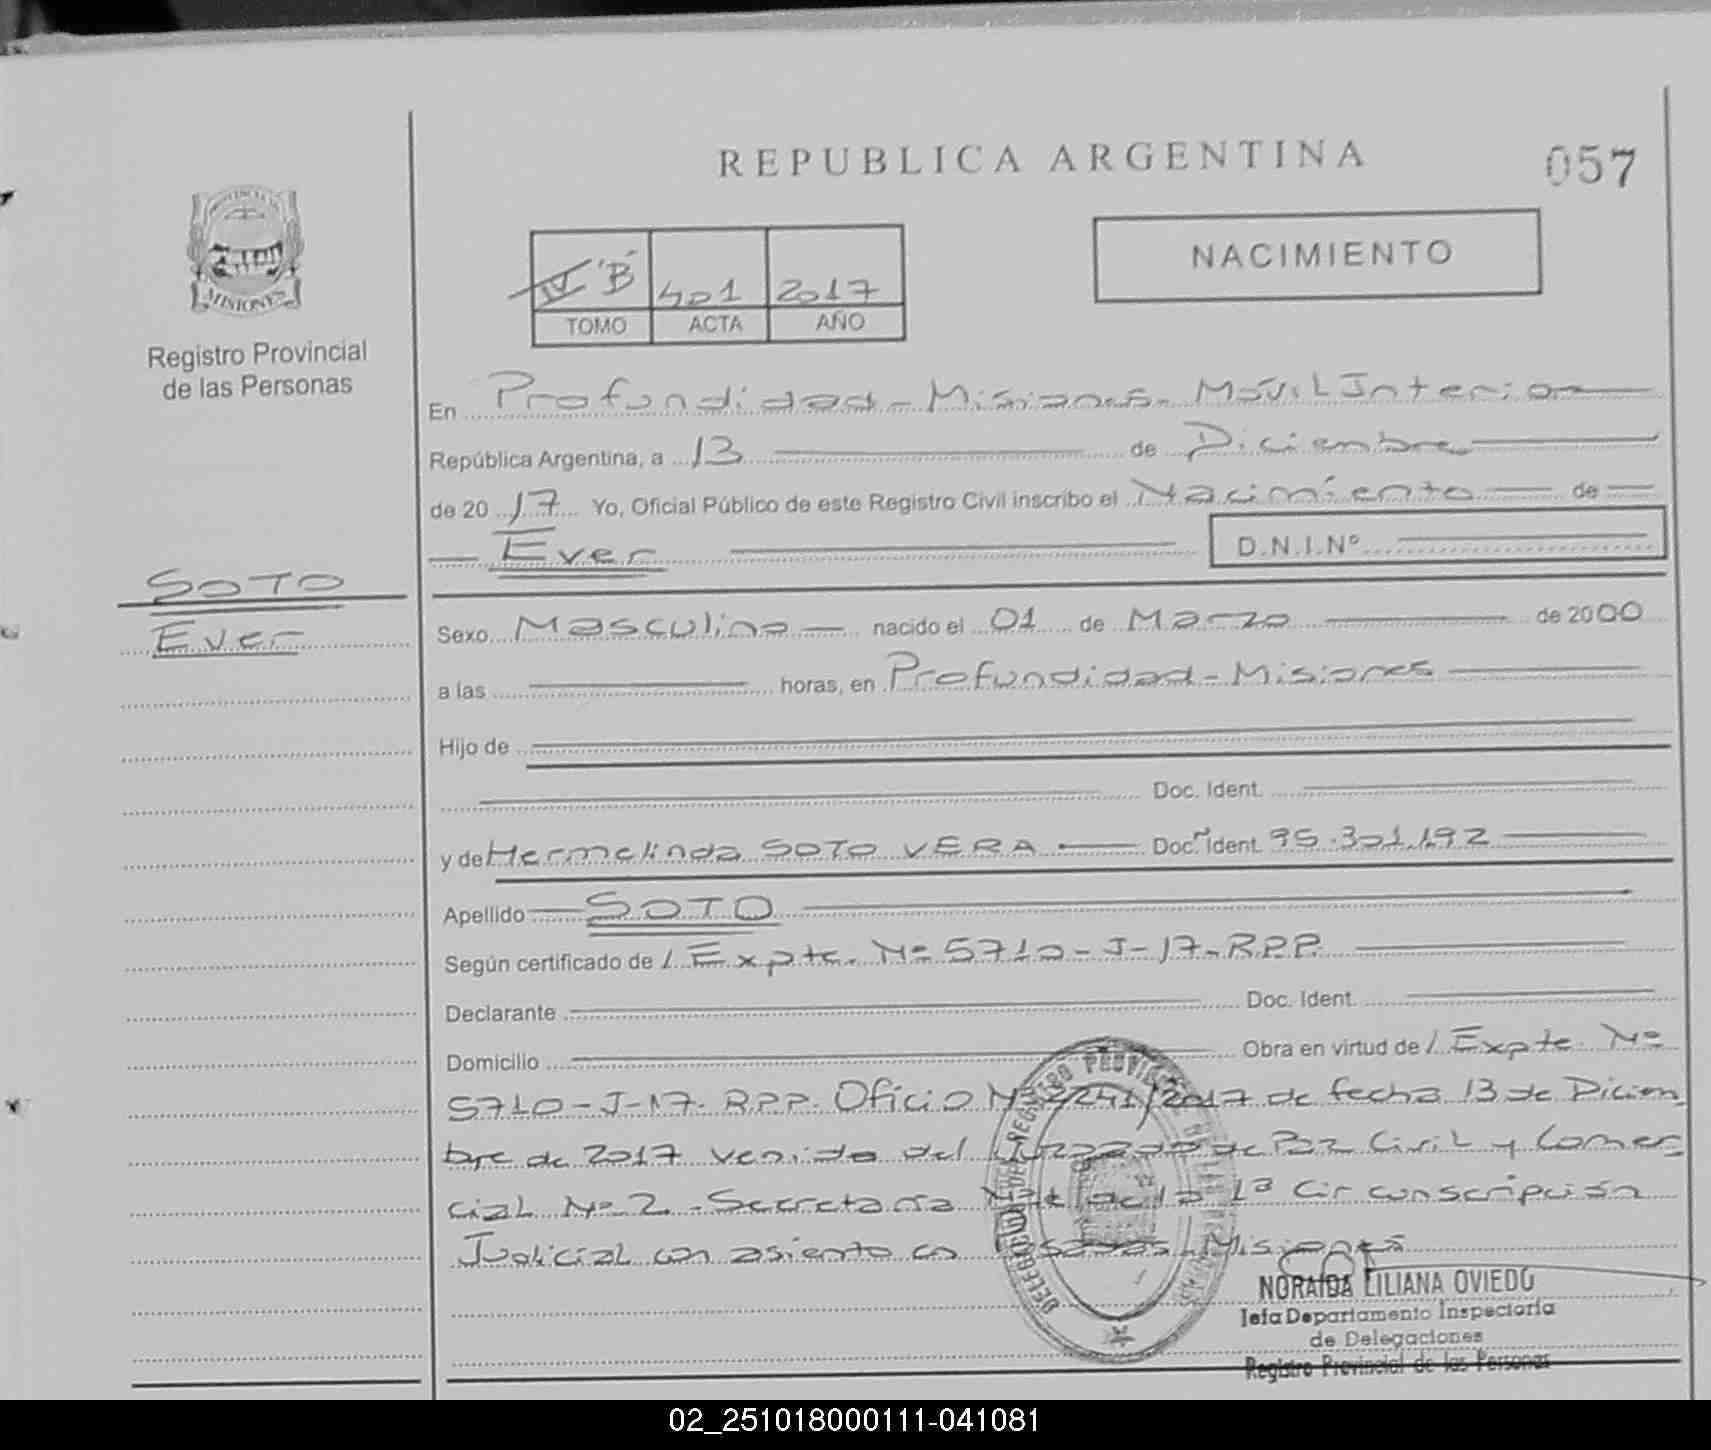 REPUBLICA ARGENTINA
057
PROVINCIA DE
MISIONES
Registro Provincial
de las Personas
IV "B" 401 2017
TOMO ACTA AÑO
NACIMIENTO
En Profundidad - Misiones - Móvil Interior
República Argentina, a 13 de Diciembre
de 20 17 Yo, Oficial Público de este Registro Civil inscribo el Nacimiento de
Ever D.N.I.Nº
SOTO
Ever
Sexo Masculino nacido el 01 de Marzo de 2000
a las horas, en Profundidad - Misiones
Hijo de
Doc. Ident.
y de Hermelinda SOTO VERA Doc. Ident. 95.301.192
Apellido SOTO
Según certificado de / Expte. Nº 5710-J-17-R.P.P.
Declarante Doc. Ident.
Domicilio Obra en virtud de / Expte. Nº
5710-J-17-R.P.P. Oficio Nº 2241/2017 de fecha 13 de Diciem
bre de 2017 venido del Juzgado de Paz Civil y Comer
cial Nº 2 - Secretaría de la 1ª Circunscripción
Judicial con asiento en Posadas - Misiones
NORAIDA LILIANA OVIEDO
Jefa Departamento Inspectoría
de Delegaciones
Registro Provincial de las Personas
02_251018000111-041081